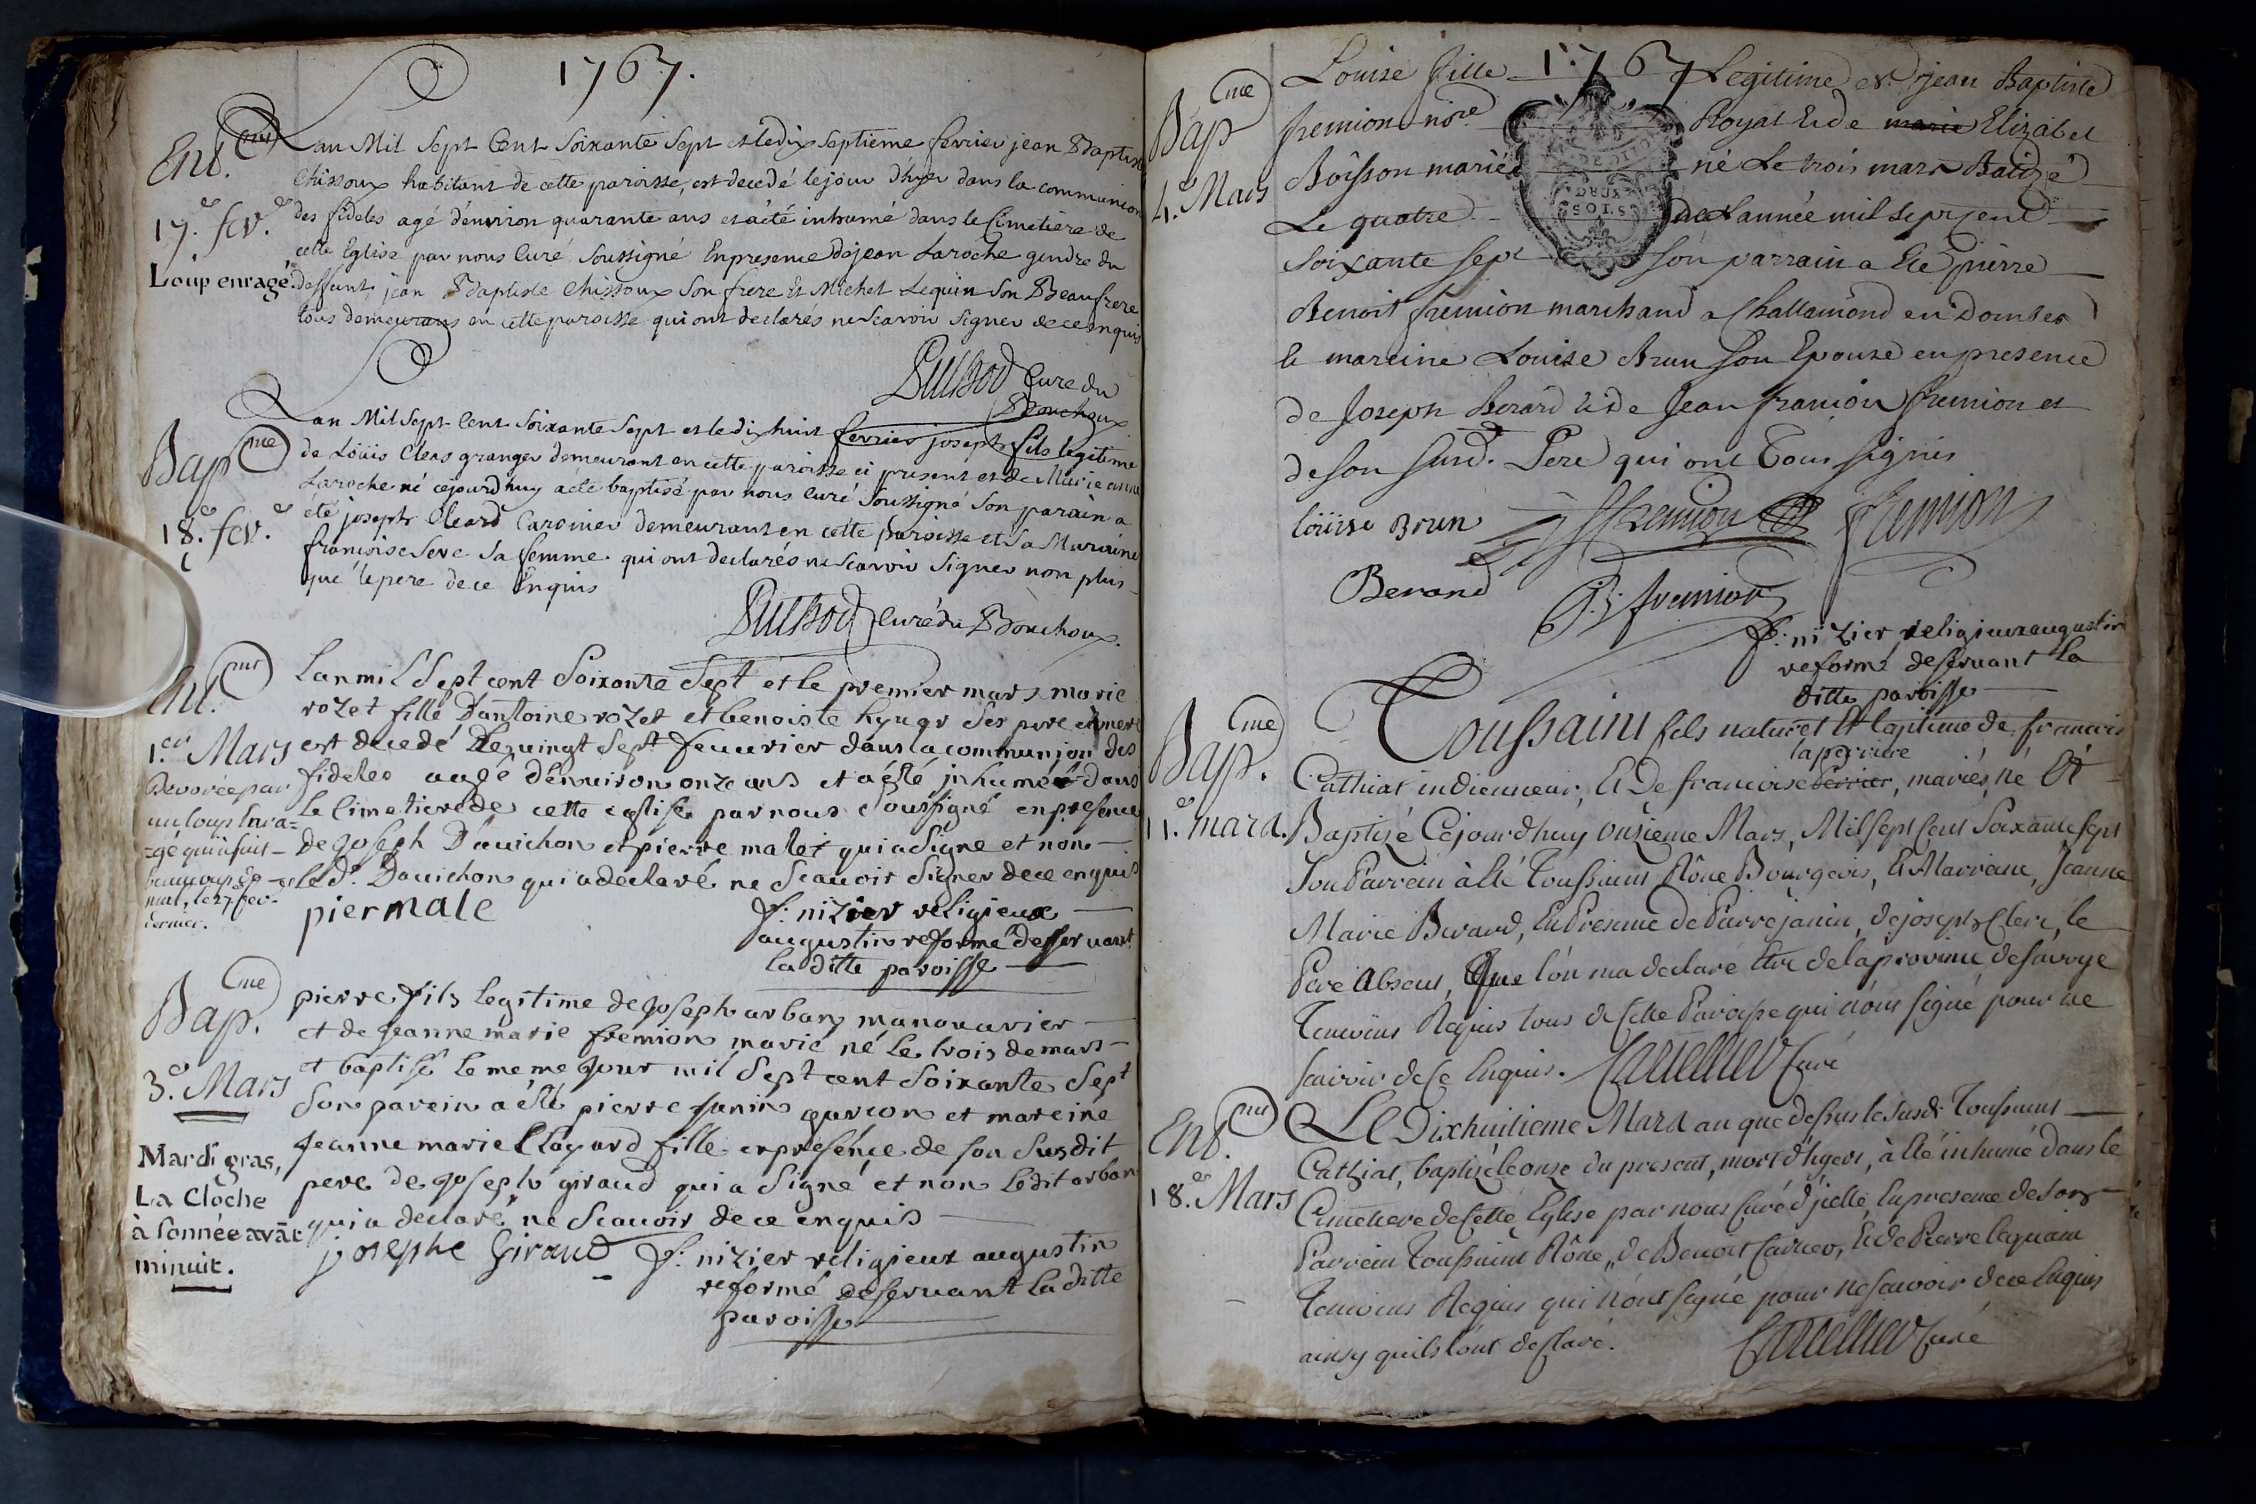 1767.
Ent.
mt
17.e fev.e
Loup enragé.
Lan Mil Sept Cent Soixante Sept et le dix septieme fevrier jean Baptiste
Chissoux habitant de cette paroisse, est decedé le jour d'hyer dans la communion
des fideles agé d'environ quarante ans et a été inhumé dans le Cimetiere de
cette Eglise par nous Curé Soussigné En presence de jean Laroche gendre du
deffunt, jean Baptiste Chissoux Son frere Et Michel Lequin Son Beaufrere
tous demeurans en cette paroisse qui ont declarés ne Scavoir Signer de ce enquis
Curé du
Bouchoux
Bap
me
18.e fev.e
Lan Mil Sept Cent Soixante Sept et le dix huit fevrier joseph fils legitime
de Loüis Cleas granger demeurant en cette paroisse ci present et de Marie anne
Laroche né cejourd'huy a été baptisé par nous Curé Soussigné Son parain a
été joseph Cleard demeurant en cette paroisse et Sa Maraine
françoise Seve Sa femme qui ont declarés ne Scavoir Signer non plus
que le pere de ce Enquis
Curé du Bouchoux.
Ent.
mt
1.er Mars
Devorée par
un loup Enra=
=gé qui a fait
beaucoup de
mal, le 27 fev.
dernier.
Lan mil Sept cent Soixante Sept et le premier mars marie
rozet fille D'antoine rozet et benoiste Ses pere et mere
est decedé Le vingt Sept feuvrier dans la communion des
fideles augé d'enuiron onze ans et a été inhumé dans
Le Cimetiere de cette eglise par nous Soussigné en presence
de joseph D'auichon et pierre malet qui a Signe et non
le d. Dauichon qui a declaré ne Scauoir Signer de ce enquis
pier male
f. nizier religieux
augustin reformé desservant
la ditte paroisse
Bap.
me
3.e Mars
Mardi gras,
La Cloche
à Sonnée avãt
minuit.
pierre fils legitime de joseph arban manouurier
et de jeanne marie fremion marié né le trois de mars
et baptisé le meme jour mil Sept cent Soixante Sept
Son parein a été pierre janin garçon et mareine
jeanne marie Clayard fille en presence de son Susdit
pere de joseph giraud qui a Signé et non Ledit arban
qui a declaré ne Scauoir de ce enquis
josephe Giraud
f. nizier religieux augustin
reformé deseruant la ditte
paroisse
1767
Bap
me
4.e Mars
Louise fille Legitime de jean Baptiste
fremion no.re Royal Et de marie Elizabet
Boisson mariés né Le trois mars Batizé
Le quatre de L'année mil sept cent
Soixante sept son parrain a Eté pierre
Benoit fremion marchand a Challamond en Dombes
la mareine Louise Brun son Epouse en presence
de Joseph Berard Et de Jean françion fremion et
de son susd. Pere qui ont Tous signés
loüise Brun
fremion
fremion
Berard
fremion
f. nizier religieux augustin
reformé deseruant la
ditte paroisse
Bap.
me
11.e mars.
Toussaint fils naturel Et legitime de françois
laperriere
Cathiat indienneur, Et De françoise perrier, mariés, né Et
Baptizé Cejourdhuy onzieme Mars, Mil sept Cent Soixante sept
Son Parrein à Eté Toussaint Rône Bourgeois, Et Marreine, Jeanne
Marie Berard, En Presence de Pierre janin, de joseph Clerc, le
Pere Absent, Que l'on ma declaré être de la province de Savoye
Temoins Requis tous de Cette Paroisse qui n'ont signé pour ne
scavoir de Ce Enquis. Curé
Ent.
mt
18.e Mars
Le Dixhuitieme Mars an que dessus le Susdi Toussaint
Cathiat, baptizé le onze du present, mort d'hyers, à Eté inhumé dans le
Cimetiere de Cette Eglise par nous Curé d'jcelle En presence de son
Parrein Toussaint Rône, de Benoit Et de Pierre lequain
Temoins Requis qui n'ont signé pour ne scavoir de ce Enquis
ainsy quils l'ont declaré. Curé